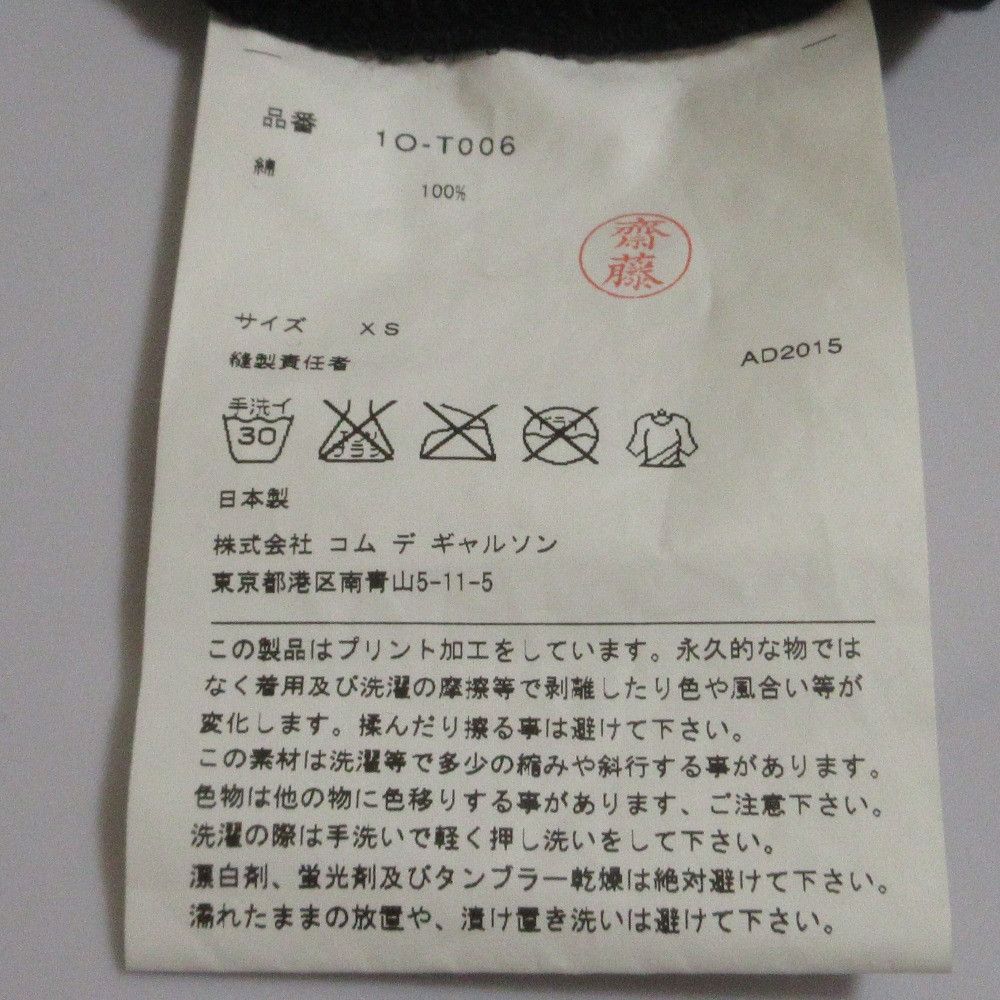 品番 1O-T006
綿 100%
齋藤
サイズ XS
縫製責任者 AD2015
手洗イ
30
エンソ
サラシ
ドライ
日本製
株式会社 コム デ ギャルソン
東京都港区南青山5-11-5
この製品はプリント加工をしています。永久的な物では
なく着用及び洗濯の摩擦等で剥離したり色や風合い等が
変化します。揉んだり擦る事は避けて下さい。
この素材は洗濯等で多少の縮みや斜行する事があります。
色物は他の物に色移りする事があります、ご注意下さい。
洗濯の際は手洗いで軽く押し洗いをして下さい。
漂白剤、蛍光剤及びタンブラー乾燥は絶対避けて下さい。
濡れたままの放置や、漬け置き洗いは避けて下さい。